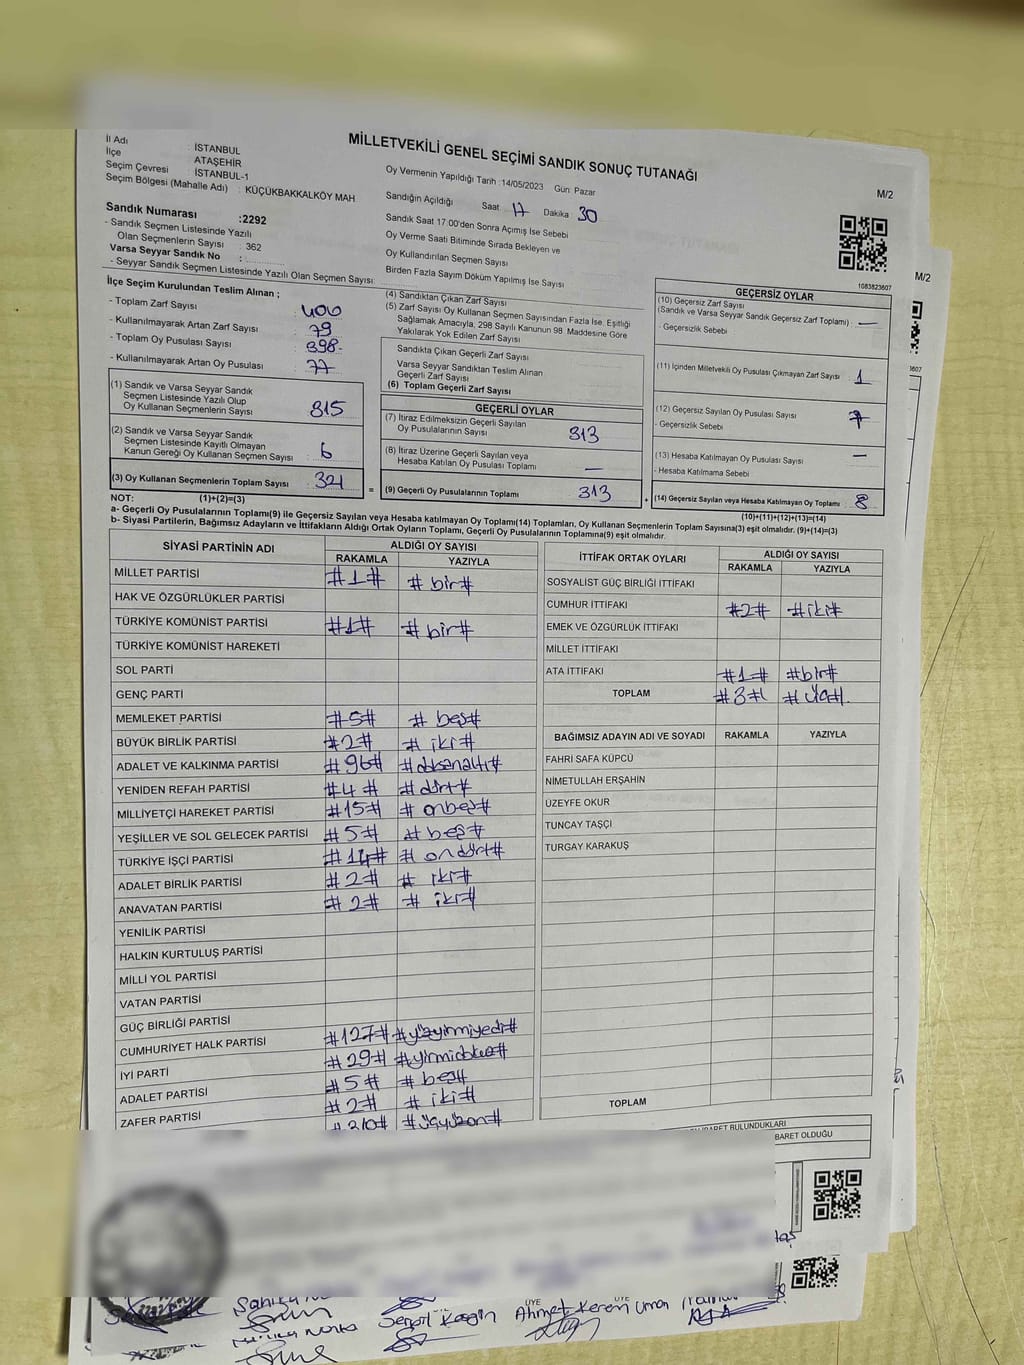 MİLLETVEKİLİ GENEL SEÇİMİ SANDIK SONUÇ TUTANAĞI
M/2
İl Adı : İSTANBUL
İlçe : ATAŞEHİR
Seçim Çevresi : İSTANBUL-1
Seçim Bölgesi (Mahalle Adı) : KÜÇÜKBAKKALKÖY MAH
Sandık Numarası :2292
- Sandık Seçmen Listesinde Yazılı
Olan Seçmenlerin Sayısı : 362
Varsa Seyyar Sandık No :
- Seyyar Sandık Seçmen Listesinde Yazılı Olan Seçmen Sayısı:
Oy Vermenin Yapıldığı Tarih :14/05/2023 Gün: Pazar
Sandığın Açıldığı Saat 17 Dakika 30
Sandık Saat 17:00'den Sonra Açımış İse Sebebi
Oy Verme Saati Bitiminde Sırada Bekleyen ve
Oy Kullandırılan Seçmen Sayısı
Birden Fazla Sayım Döküm Yapılmış İse Sayısı
1083823607
M/2
3607
İlçe Seçim Kurulundan Teslim Alınan ;
- Toplam Zarf Sayısı : 400
- Kullanılmayarak Artan Zarf Sayısı : 79
- Toplam Oy Pusulası Sayısı : 398
- Kullanılmayarak Artan Oy Pusulası : 77
(1) Sandık ve Varsa Seyyar Sandık
Seçmen Listesinde Yazılı Olup
Oy Kullanan Seçmenlerin Sayısı 315
(2) Sandık ve Varsa Seyyar Sandık
Seçmen Listesinde Kayıtlı Olmayan
Kanun Gereği Oy Kullanan Seçmen Sayısı : 6
(3) Oy Kullanan Seçmenlerin Toplam Sayısı 321
(4) Sandıktan Çıkan Zarf Sayısı
(5) Zarf Sayısı Oy Kullanan Seçmen Sayısından Fazla İse, Eşitliği
Sağlamak Amacıyla, 298 Sayılı Kanunun 98. Maddesine Göre
Yakılarak Yok Edilen Zarf Sayısı
Sandıkta Çıkan Geçerli Zarf Sayısı
Varsa Seyyar Sandıktan Teslim Alınan
Geçerli Zarf Sayısı
(6) Toplam Geçerli Zarf Sayısı
GEÇERLİ OYLAR
(7) İtiraz Edilmeksizin Geçerli Sayılan
Oy Pusulalarının Sayısı 313
(8) İtiraz Üzerine Geçerli Sayılan veya
Hesaba Katılan Oy Pusulası Toplamı —
= (9) Geçerli Oy Pusulalarının Toplamı 313
GEÇERSİZ OYLAR
(10) Geçersiz Zarf Sayısı
(Sandık ve Varsa Seyyar Sandık Geçersiz Zarf Toplamı) : —
- Geçersizlik Sebebi
(11) İçinden Milletvekili Oy Pusulası Çıkmayan Zarf Sayısı 1
(12) Geçersiz Sayılan Oy Pusulası Sayısı 7
- Geçersizlik Sebebi
(13) Hesaba Katılmayan Oy Pusulası Sayısı —
- Hesaba Katılmama Sebebi
+ (14) Geçersiz Sayılan veya Hesaba Katılmayan Oy Toplamı 8
NOT: (1)+(2)=(3)
(10)+(11)+(12)+(13)=(14)
a- Geçerli Oy Pusulalarının Toplamı(9) ile Geçersiz Sayılan veya Hesaba katılmayan Oy Toplamı(14) Toplamları, Oy Kullanan Seçmenlerin Toplam Sayısına(3) eşit olmalıdır. (9)+(14)=(3)
b- Siyasi Partilerin, Bağımsız Adayların ve İttifakların Aldığı Ortak Oyların Toplamı, Geçerli Oy Pusulalarının Toplamına(9) eşit olmalıdır.
SİYASİ PARTİNİN ADI ALDIĞI OY SAYISI
RAKAMLA YAZIYLA
MİLLET PARTİSİ #1# #bir#
HAK VE ÖZGÜRLÜKLER PARTİSİ
TÜRKİYE KOMÜNİST PARTİSİ #1# #bir#
TÜRKİYE KOMÜNİST HAREKETİ
SOL PARTİ
GENÇ PARTİ
MEMLEKET PARTİSİ #5# #beş#
BÜYÜK BİRLİK PARTİSİ #2# #iki#
ADALET VE KALKINMA PARTİSİ #96# #doksanaltı#
YENİDEN REFAH PARTİSİ #4# #dört#
MİLLİYETÇİ HAREKET PARTİSİ #15# #onbeş#
YEŞİLLER VE SOL GELECEK PARTİSİ #5# #beş#
TÜRKİYE İŞÇİ PARTİSİ #14# #ondört#
ADALET BİRLİK PARTİSİ #2# #iki#
ANAVATAN PARTİSİ #2# #iki#
YENİLİK PARTİSİ
HALKIN KURTULUŞ PARTİSİ
MİLLİ YOL PARTİSİ
VATAN PARTİSİ
GÜÇ BİRLİĞİ PARTİSİ
CUMHURİYET HALK PARTİSİ #127# #yüzyirmiyedi#
İYİ PARTİ #29# #yirmidokuz#
ADALET PARTİSİ #5# #beş#
ZAFER PARTİSİ #2# #iki#
#310# #üçyüzon#
İTTİFAK ORTAK OYLARI ALDIĞI OY SAYISI
RAKAMLA YAZIYLA
SOSYALİST GÜÇ BİRLİĞİ İTTİFAKI
CUMHUR İTTİFAKI #2# #iki#
EMEK VE ÖZGÜRLÜK İTTİFAKI
MİLLET İTTİFAKI
ATA İTTİFAKI #1# #bir#
TOPLAM #3# #üç#
BAĞIMSIZ ADAYIN ADI VE SOYADI RAKAMLA YAZIYLA
FAHRİ SAFA KÜPCÜ
NİMETULLAH ERŞAHİN
ÜZEYFE OKUR
TUNCAY TAŞÇİ
TURGAY KARAKUŞ
TOPLAM
BULUNDUKLARI
BARET OLDUĞU
ÜYE
Ahmet Kerem
ÜYE